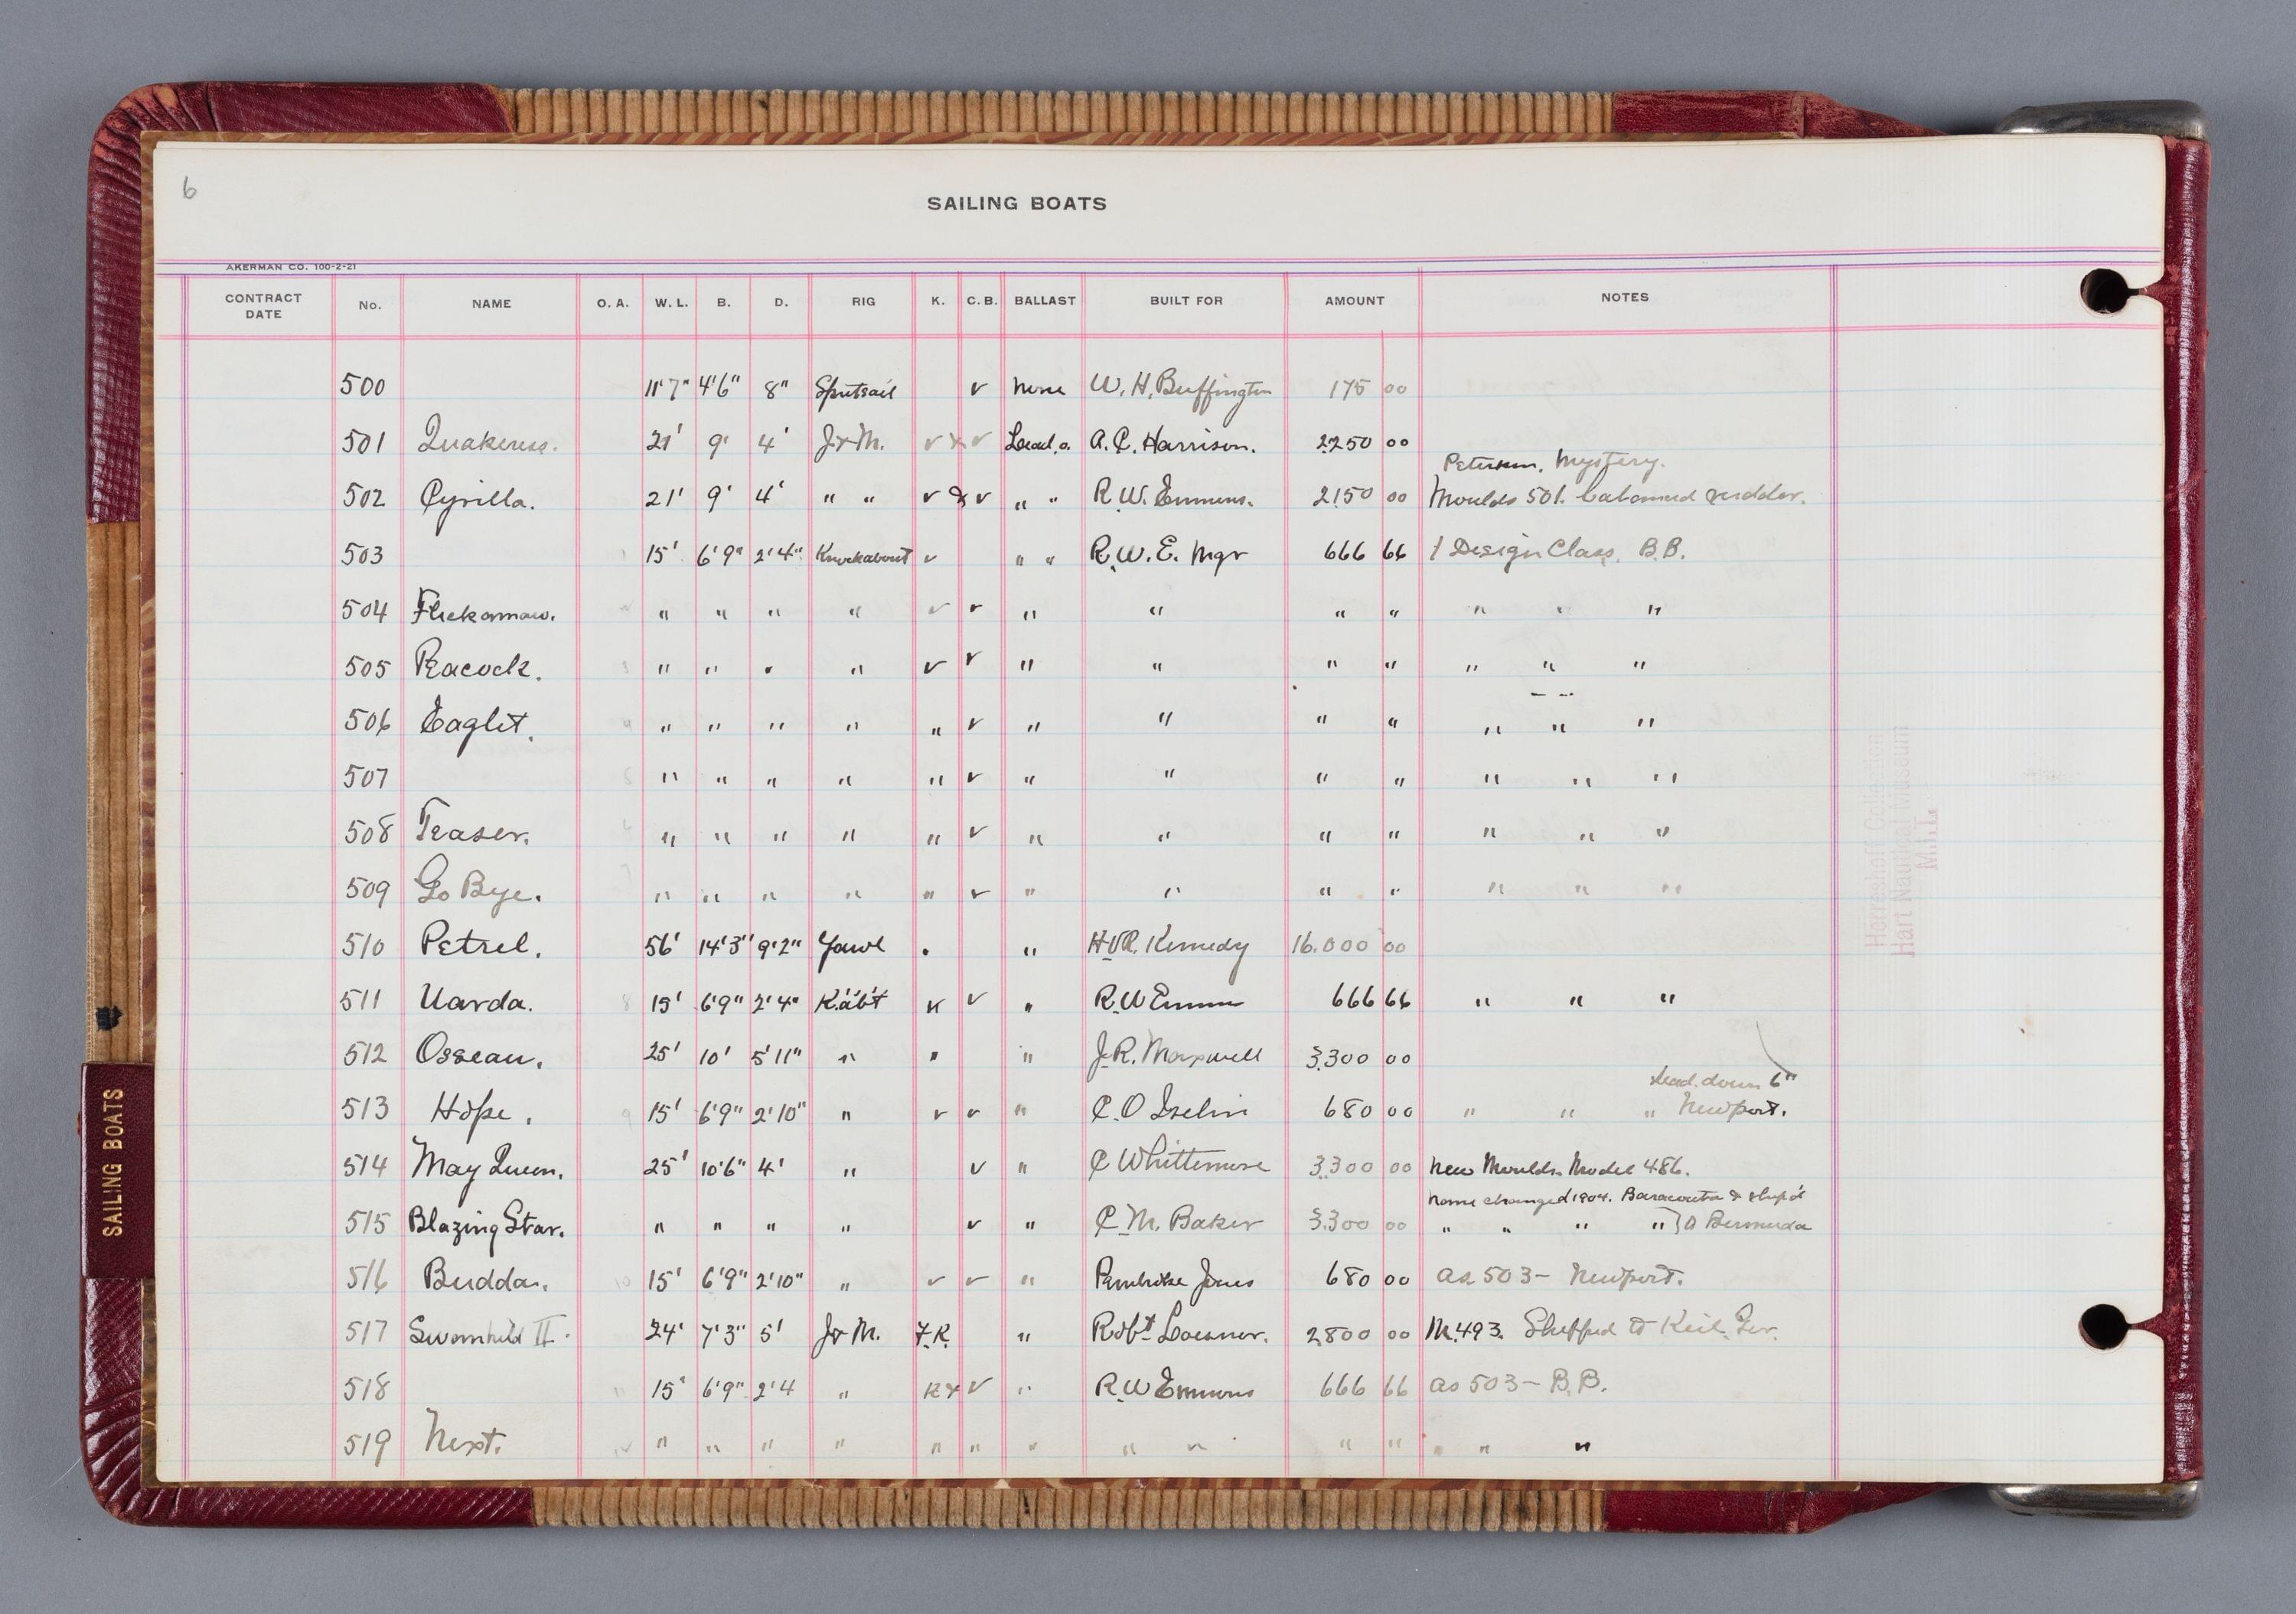 6
SAILING BOATS
AKERMAN CO. 100-2-21
CONTRACT DATE No. NAME O. A. W. L. B. D. RIG K. C. B. BALLAST BUILT FOR AMOUNT NOTES
500 11'7" 4'6" 8" Spritsail v None W. H. Buffington 175 00
501 Quakeress. 21' 9' 4' J & M. v & v Lead, o. A. C. Harrison. 2250 00
Peterson. Mystery.
502 Cyrilla. 21' 9' 4' " " v & v " " R. W. Emmons. 2150 00 Moulds 501. balanced rudder.
503 15' 6'9" 2'4" Knockabout v " " R. W. E. Mgr 666 66 1 Design Class. B.B.
504 " " " " v v " " " " " " "
505 Peacock. " " " " v v " " " " " " "
506 Eaglet. " " " " " v " " " " " " "
507 " " " " " v " " " " " " "
508 Teaser. " " " " " v " " " " " " "
509 Go Bye. " " " " " v " " " " " " "
510 Petrel. 56' 14'3" 9'2" Yawl " " H V R. Kennedy 16.000 00
511 Uarda. 15' 6'9" 2'4" K'ab't K v " R. W Emmons 666 66 " " "
512 25' 10' 5'11" " " " J. R. Maxwell 3.300 00
Lead. down 6"
513 Hope. 15' 6'9" 2'10" " v v " C. O Iselin 680 00 " " " Newport.
514 May Queen. 25' 10'6" 4' " v " C Whittemore 3.300 00 New Moulds. Model 486.
name changed 1904. Baracouta & ship'd
515 Blazing Star. " " " " v " C. M. Baker 3.300 00 " " " " } to Bermuda
516 Buddas. 15' 6'9" 2'10" " v v " Pembroke Jones 680 00 as 503 - Newport.
517 Swanhild II. 24' 7'3" 5' J & M. F. K. " Robt. Loesner. 2800 00 M. 493. Shipped to Keil. Ger.
518 15' 6'9" 2'4 " K & v " R. W Emmons 666 66 as 503 - B. B.
519 Next. " " " " " " " " " " " " " "
SAILING BOATS
Herreshoff Collection
Hart Nautical Museum
M.I.T.